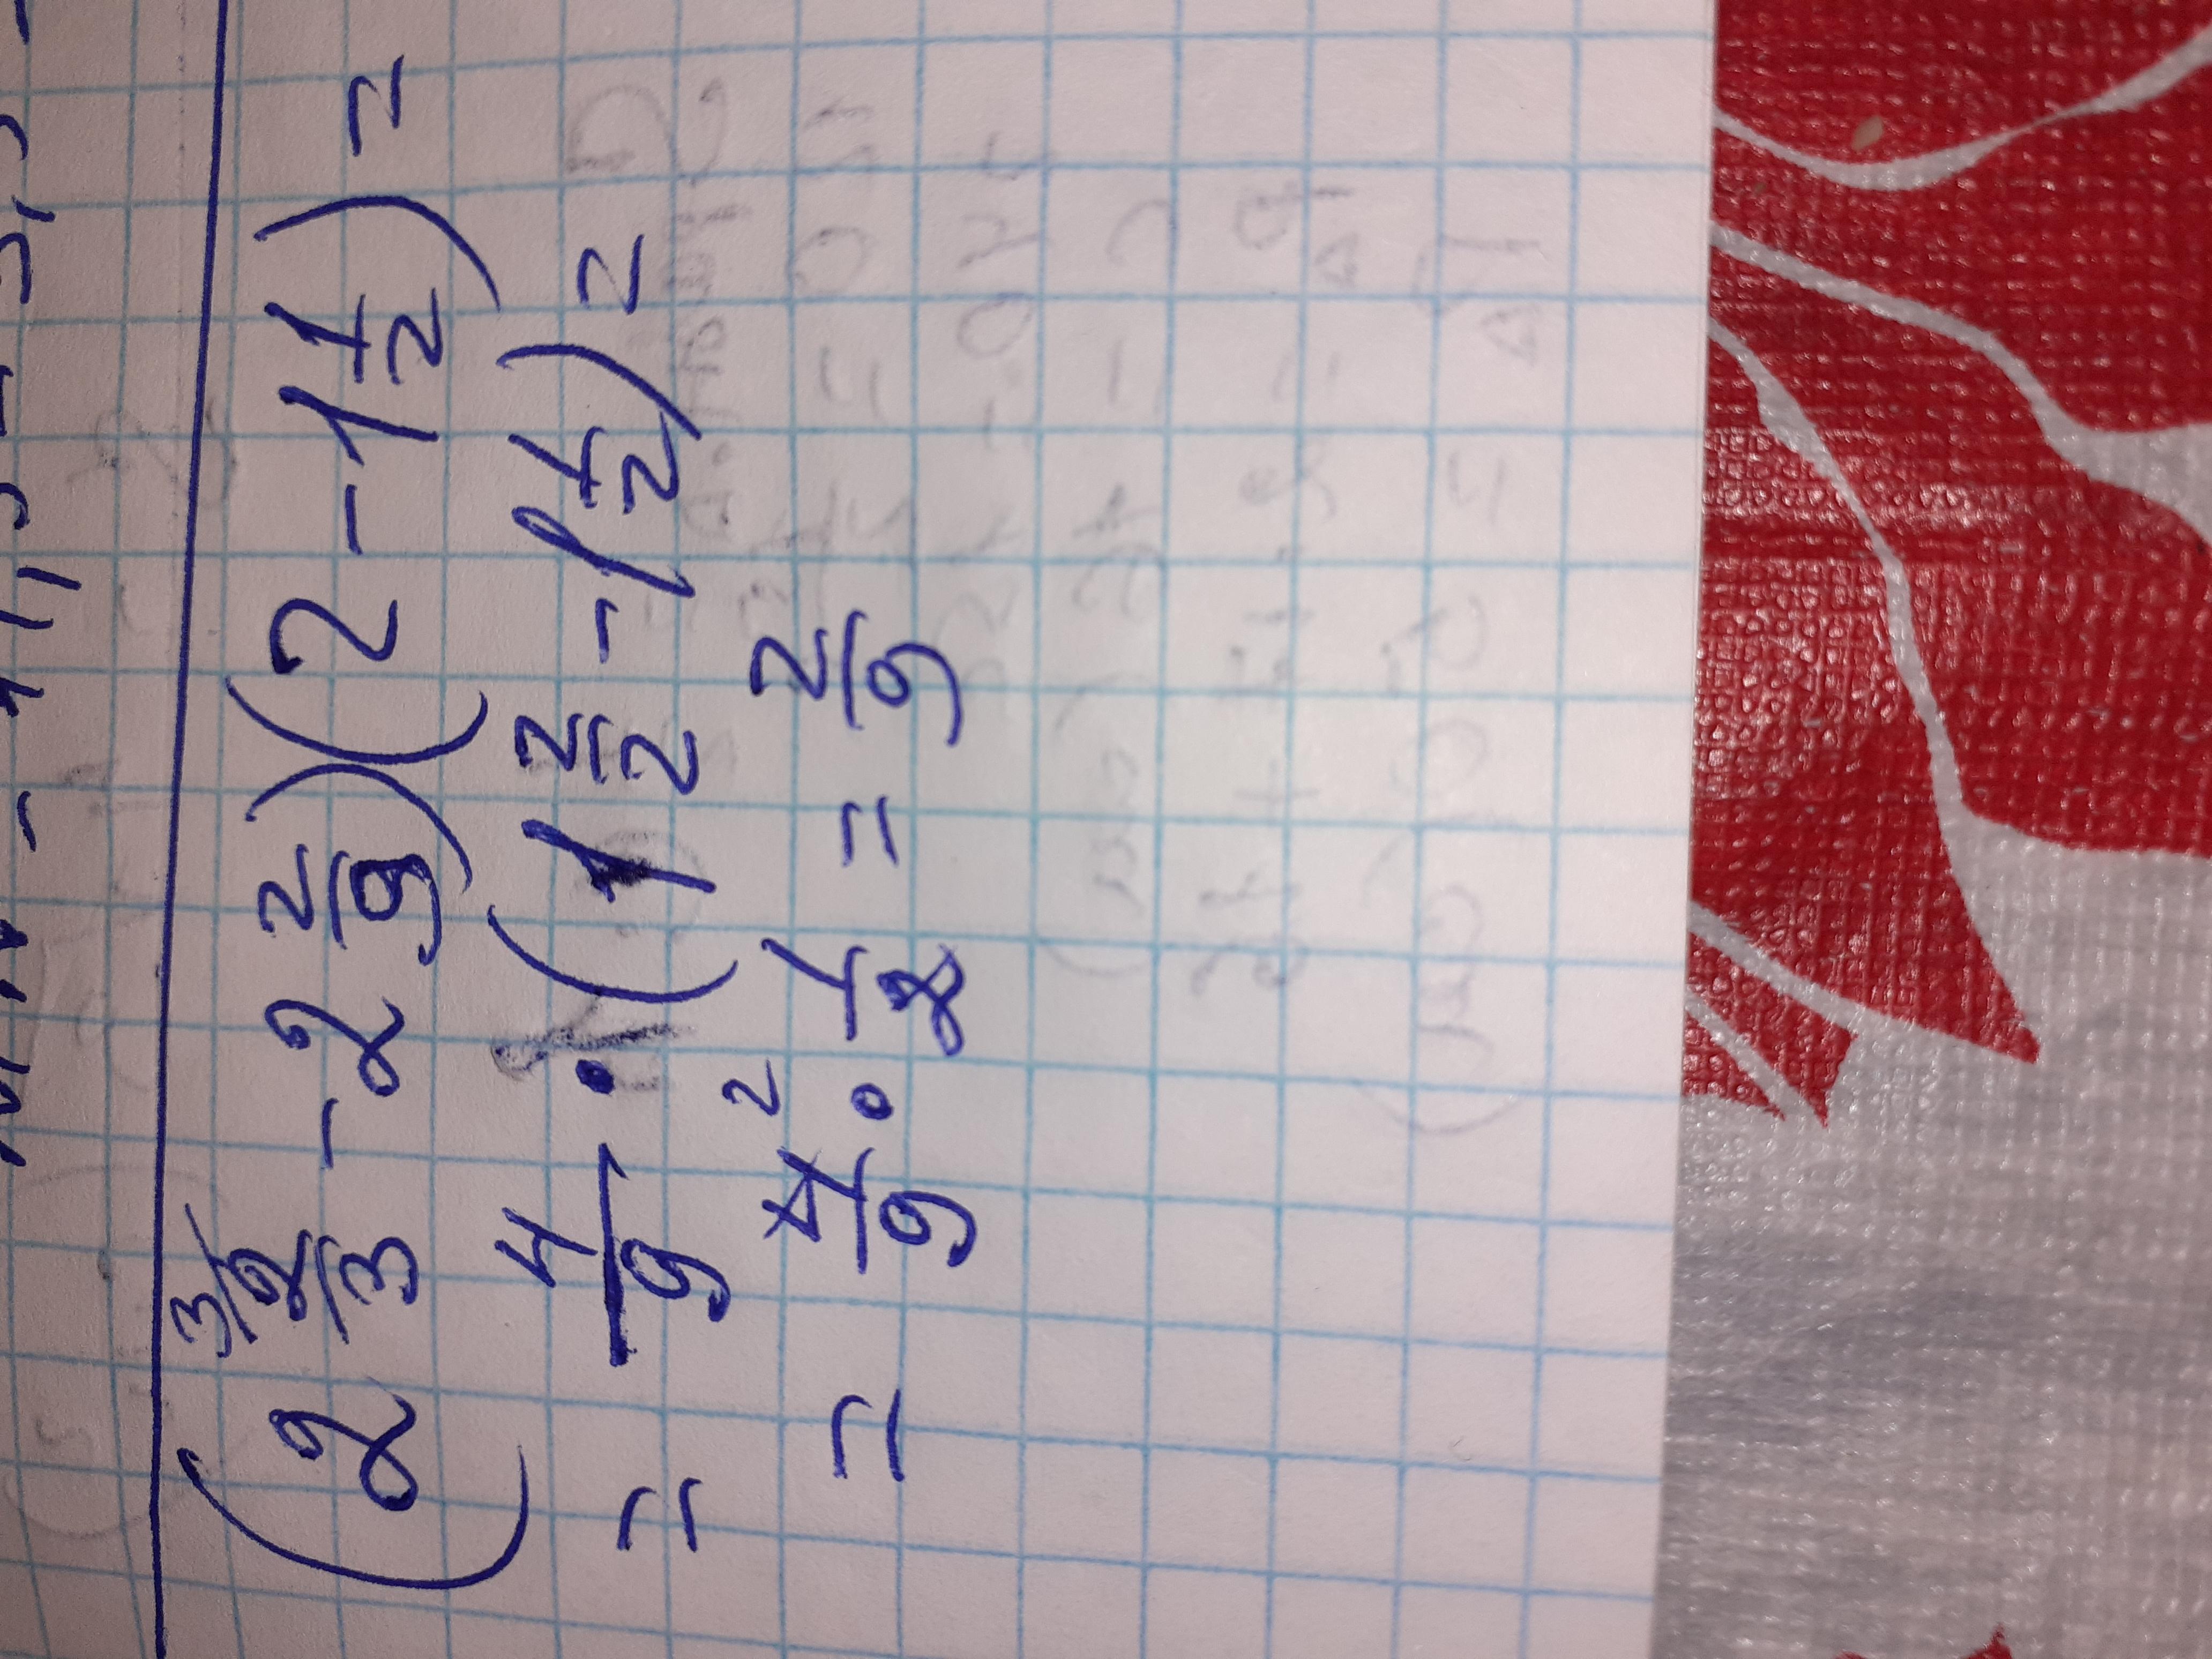 (2 3/ 2/3 - 2 2/9)(2 - 1 1/2) =
= 4/9 · (1 2/2 - 1 1/2) =
= 4/9 2 · 1/2 = 2/9